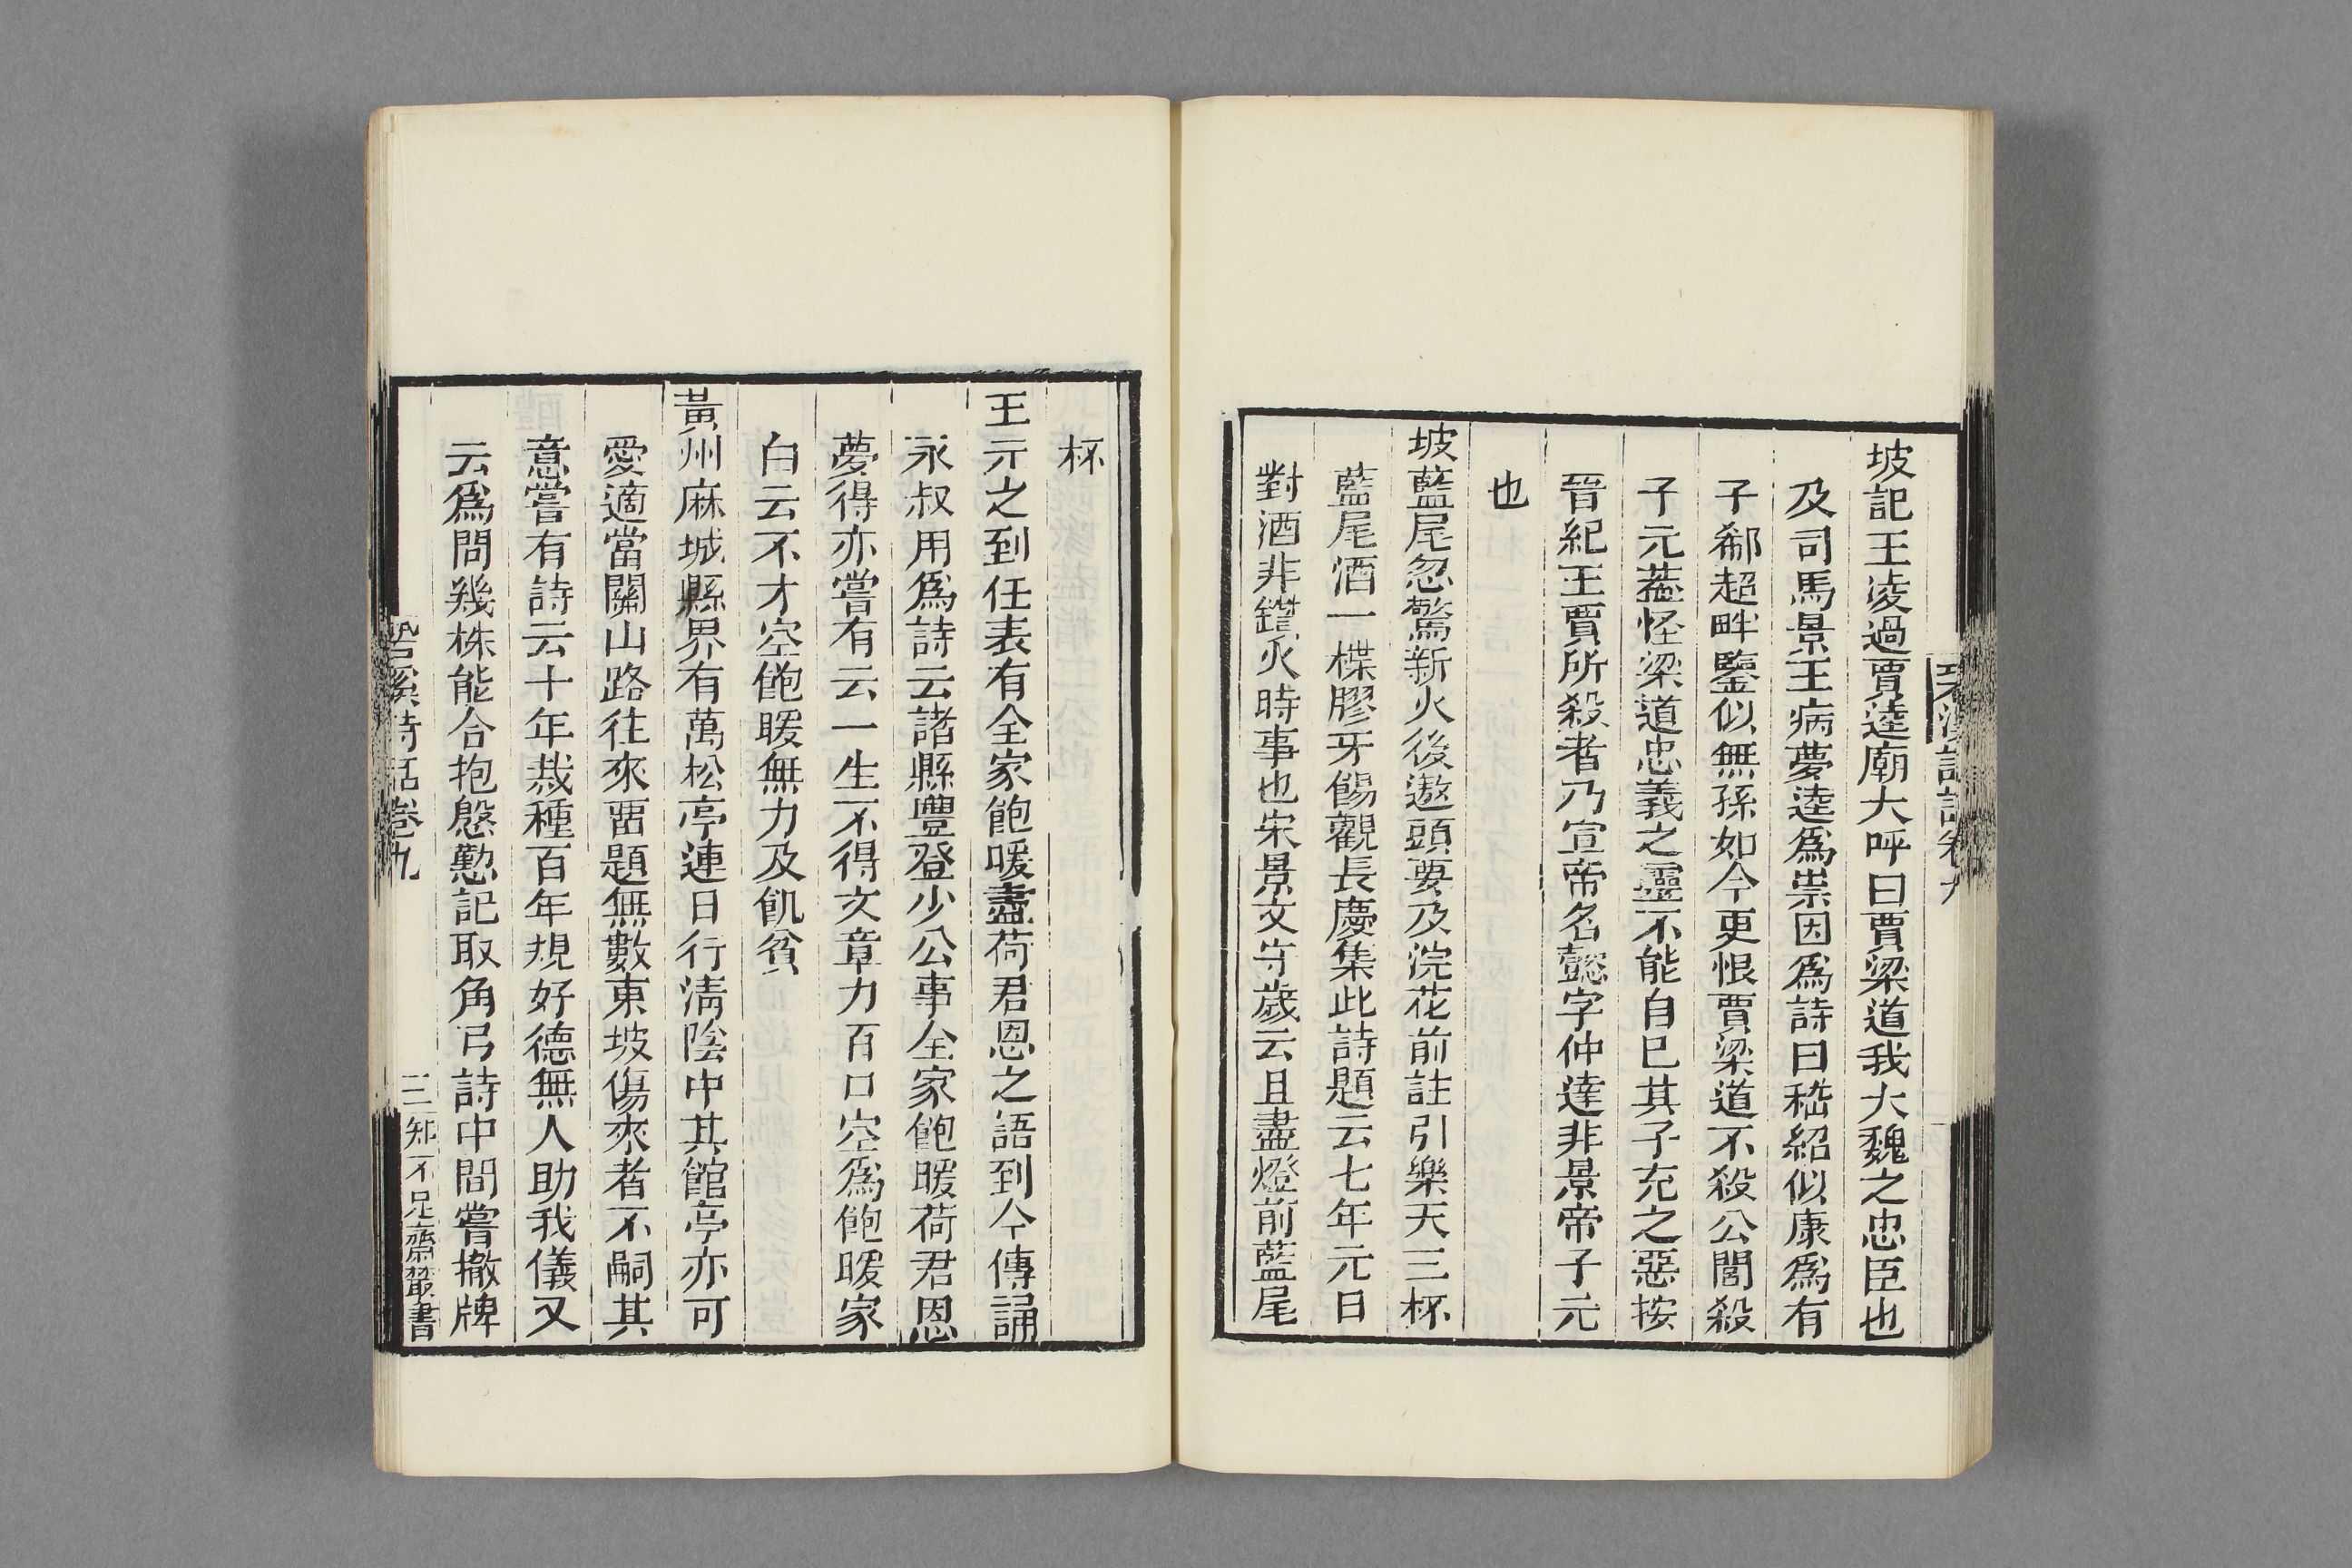 坡記王淩過賈逵廟大呼曰賈梁道我大魏之忠臣也
及司馬景王病夢逵爲祟因爲詩曰嵇紹似康爲有
子郗超畔鑒似無孫如今更恨賈梁道不殺公閭殺
子元葢怪梁道忠義之靈不能自已其子充之惡按
晉紀王賈所殺者乃宣帝名懿字仲達非景帝子元
也
坡藍尾忽驚新火後遨頭要及浣花前註引樂天三杯
藍尾酒一楪膠牙餳觀長慶集此詩題云七年元日
對酒非鑽火時事也宋景文守歲云且盡燈前藍尾
杯
王元之到任表有全家飽暖盡荷君恩之語到今傳誦
永叔用爲詩云諸縣豐登少公事全家飽暖荷君恩
夢得亦嘗有云一生不得文章力百口空爲飽暖家
白云不才空飽暖無力及飢貧
黃州麻城縣界有萬松亭連日行淸陰中其館亭亦可
愛適當關山路往來畱題無數東坡傷來者不嗣其
意嘗有詩云十年栽種百年規好德無人助我儀又
云爲問幾株能合抱慇懃記取角弓詩中間嘗撤牌
䂬溪詩話卷九
三知不足齋叢書